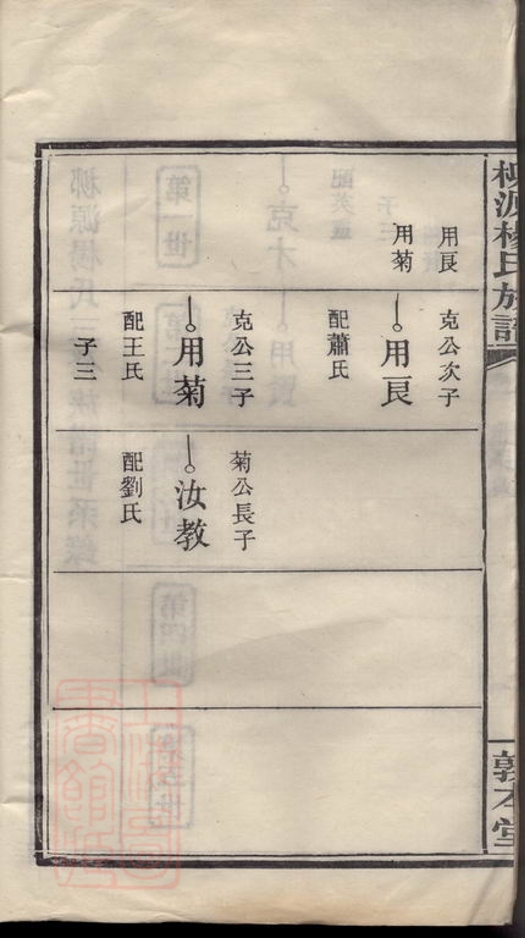 柳源楊氏族譜
敦本堂
用艮
用菊
克公次子
用艮
配蕭氏
克公三子
用菊
配王氏
子三
菊公長子
汝教
配劉氏